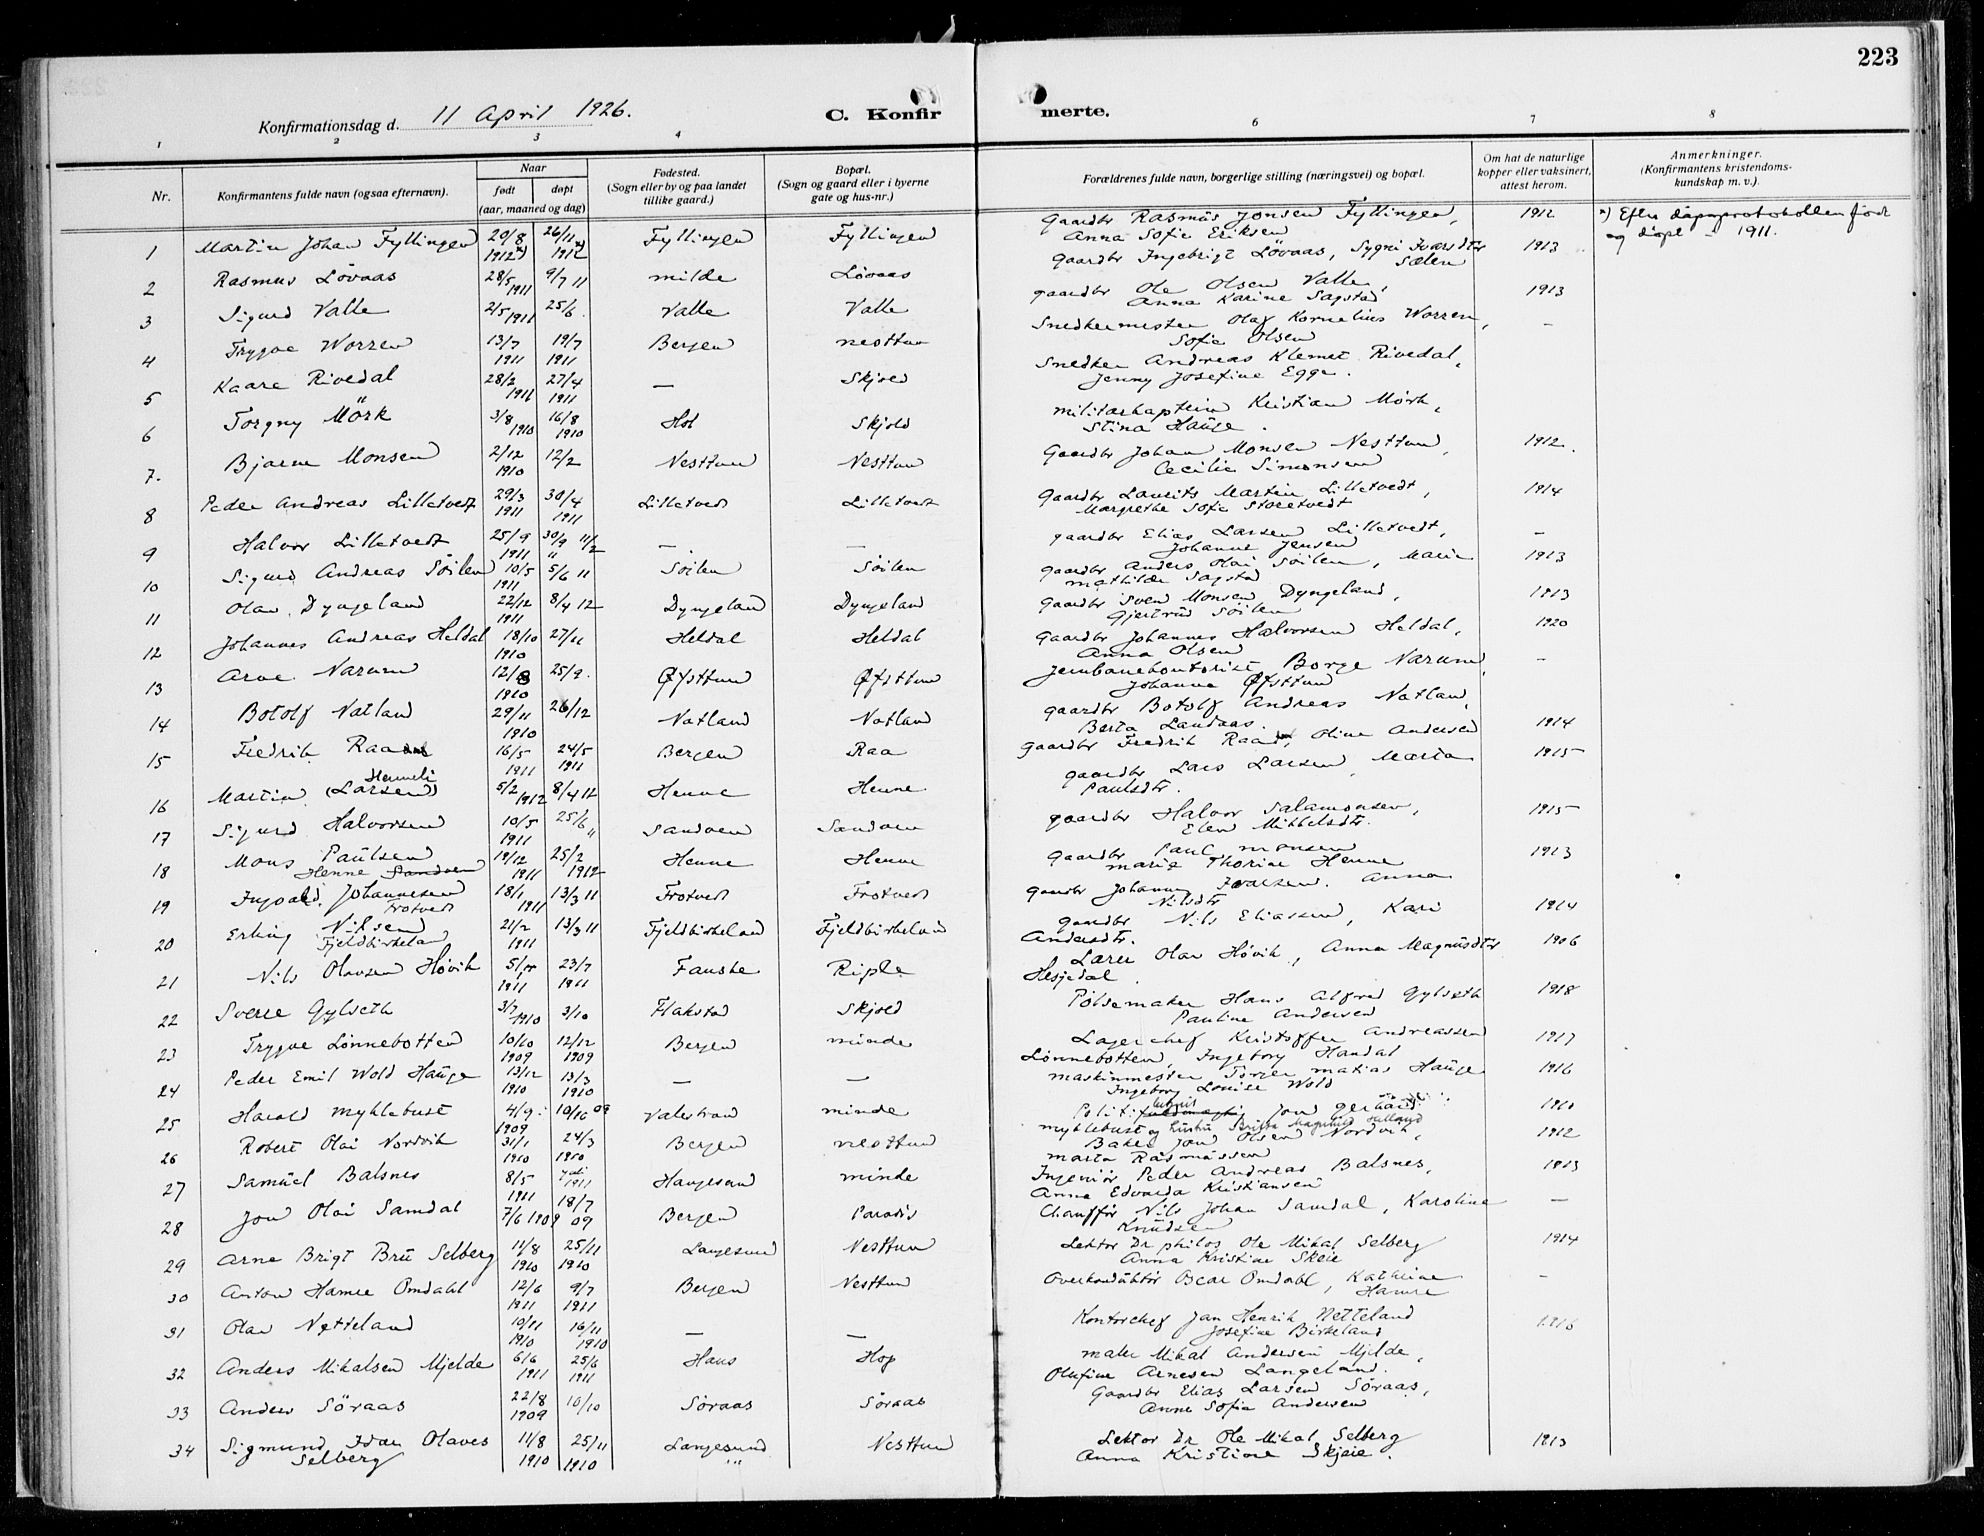 223
Konfirmationsdag d. 11 April 1926.
C. Konfirmerte.
1 2 3 4 6 7 8
Nr.
Konfirmantens fulde navn (ogsaa efternavn).
Naar
født
døpt
(aar, maaned og dag)
Fødested.
(Sogn eller by og paa landet
tillike gaard.)
Bopæl.
(Sogn og gaard eller i byerne
gate og hus-nr.)
Forældrenes fulde navn, borgerlige stilling (næringsvei) og bopæl.
Om hat de naturlige
kopper eller vaksinert,
attest herom.
Anmerkninger.
(Konfirmantens kristendoms-
kundskap m. v.).
1 Martin Johan Fyllingen 29/8 1912 26/11 1912 Fyllingen Fyllingen Gaardbr Rasmus Jonsen Fyllingen, 1912 Efter døpeprotokollen født
Anna Sofie Eriksen og døpt 1911.
2 Rasmus Lövaas 28/5 1911 9/7 11 Milde Lövaas Gaardbr Ingebrigt Lövaas, Sygni Ivarsdtr 1913
Sælen
3 Sigurd Valle 2/5 1911 25/6 Valle Valle gaardbr Ole Olsen Valle, 1913
Anna Karine Sagstad
4 Trygve Worren 13/7 1911 19/7 1911 Bergen Nesttun Snedkermester Olaf Kornelius Worren, –
Sofie Olsen
5 Kaare Rivedal 28/2 1911 27/4 1911 — Skjold Snedker Andreas Klemet Rivedal,
Jenny Josefine Egge.
6 Torgny Mörk 3/8 1910 16/8 1910 Hol Skjold militærkaptein Kristian Mörk,
Stina Hauge.
7. Bjarne Monsen 2/12 1910 12/2 Nesttun Nesttun Gaardbr Johan Monsen Nesttun, 1912.
Cecilie Simonsen
8 Peder Andreas Lilletvedt 29/3 1911 30/4 1911 Lilletvedt Lilletvedt Gaardbr Laurits Martin Lilletvedt, 1914
Margrethe Sofie Storetvedt
9 Halvor Lilletvedt 25/9 1911 30/9 11 — — gaardbr Elias Larsen Lilletvedt, –
Johanne Jensen
10 Sigurd Andreas Söilen 10/5 1911 5/6 11 Söilen Söilen gaardbr Anders Olai Söilen, Marie 1913
Mathilde Sagstad
11 Olav Dyngeland 22/12 1911 8/4 12 Dyngeland Dyngeland gaardbr Sven Monsen Dyngeland, 1913
Gjertrud Söilen
12 Johannes Andreas Heldal 18/10 1910 27/11 Heldal Heldal gaardbr Johannes Halvorsen Heldal, 1920
Anna Olsen
13 Arve Narum 12/8 1910 25/9. Øfsttun Øfsttun Jernbanekontorist Borge Narum, –
Johanne Øfsttun
14 Botolf Natland 29/11 1910 26/12 Natland Natland gaardbr Botolf Andreas Natland,
Berta Landaas.
15 Fredrik Raa 16/5 1911 24/5 1911 Bergen Raa Gaardbr Fredrik Raa, Oline Andersen 1914
16 Martin (Larsen) Henneli 5/2 1912 8/4 12 Henne Henne gaardbr Lars Larsen, Marta 1915
Paulsdtr.
17 Sigurd Halvorsen 10/5 1911 25/6 " Sandven Sandven gaardbr Halvor Salamonsen, 1915
Elen Mikkelsdtr.
18 Mons Paulsen 19/12 1911 25/2 1912 Henne Henne Gaardbr Paul Monsen 1913
Henne Sandven Marie Thorine Henne
19 Ingvald Johannesen 18/1 1911 13/3 11 Trotvedt Trotvedt gaardbr Johannes Ivarsen. Anna
Trotvedt Nilsdtr
20 Erling Nilsen 21/2 1911 13/3 11 Fjeldbirkeland Fjeldbirkeland gaardbr Nils Eliassen, Kari 1914
Fjeldbirkeland Andersdtr.
21 Nils Olavsen Hövik 5/ 1911 23/7 1911 Fauske Riple Lærer Olav Hövik, Anna Magnusdtr 1906
Hesjedal.
22 Sverre Gylseth 3/7 1910 3/10 Flakstad Skjold Pölsemaker Hans Alfred Gylseth 1918
Pauline Andersen
23 Trygve Lönnebotten 10/10 1909 12/12 1909 Bergen Minde Lagerchef Kristoffer Andreassen 1917
Lönnebotten, Ingeborg Handal
24 Peder Emil Wold Hauge 13/12 1910 13/3 1910 — — maskinmester Torger Matias Hauge 1916
Ingeborg Louise Wold
25 Harald Myklebust 4/9 1909 10/10 09 Valestrand Minde Politi Jon Gerhard 1910
Myklebust og hustru Brita Magnhild
26 Robert Olai Nordvik 31/1 1910 24/3 1910 Bergen Nesttun Baker Jon Olsen Nordvik, 1912
Marta Rasmussen
27 Samuel Balsnes 8/5 1911 Juli 1911 Haugesund Minde Ingeniör Peder Andreas Balsnes, 1913
Anna Edvarda Kristiansen
28 Jon Olai Samdal 7/6 1909 18/7 09 Bergen Paradis Chaufför Nils Johan Samdal, Karoline —
Knudsen
29 Arne Brigt Bru Selberg 11/8 1910 25/11 1910 Langesund Nesttun Lektor Dr philos Ole Mikal Selberg 1914
Anna Kristine Skeie
30 Anton Hamre Omdahl 12/6 1911 9/7 1911 Bergen Nesttun Overkonduktör Oscar Omdahl, Kathrine –
Hamre
31 Olav Netteland 10/11 1910 16/11 1910 — — Kontorchef Jan Henrik Netteland 1916
Josefine Birkeland
32 Anders Mikalsen Mjelde 6/6 1911 25/6 1911 Haus Hop maler Mikal Andersen Mjelde,
Olufine Arnesen Langeland.
33 Anders Söraas 22/8 1909 10/10 Söraas Söraas Gaardbr Elias Larsen Söraas,
Anne Sofie Andersen
34 Sigmund Olaves 11/8 1910 25/11 1910 Langesund Nesttun Lektor Dr Ole Mikal Selberg 1913
Selberg Anna Kristine Skjeie.